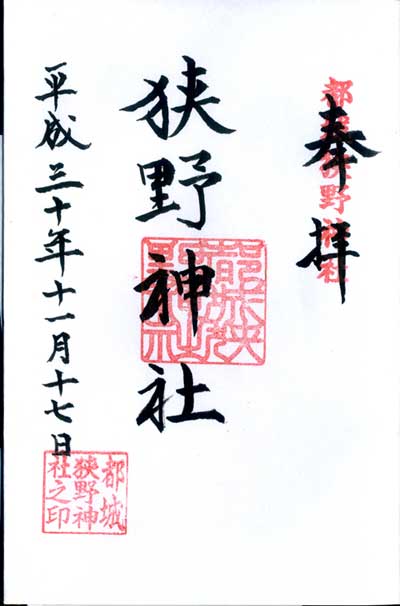 奉拝
都城狭野神社
狭野神社
都城狭野神社
平成三十年十一月十七日
都城
狭野神
社之印